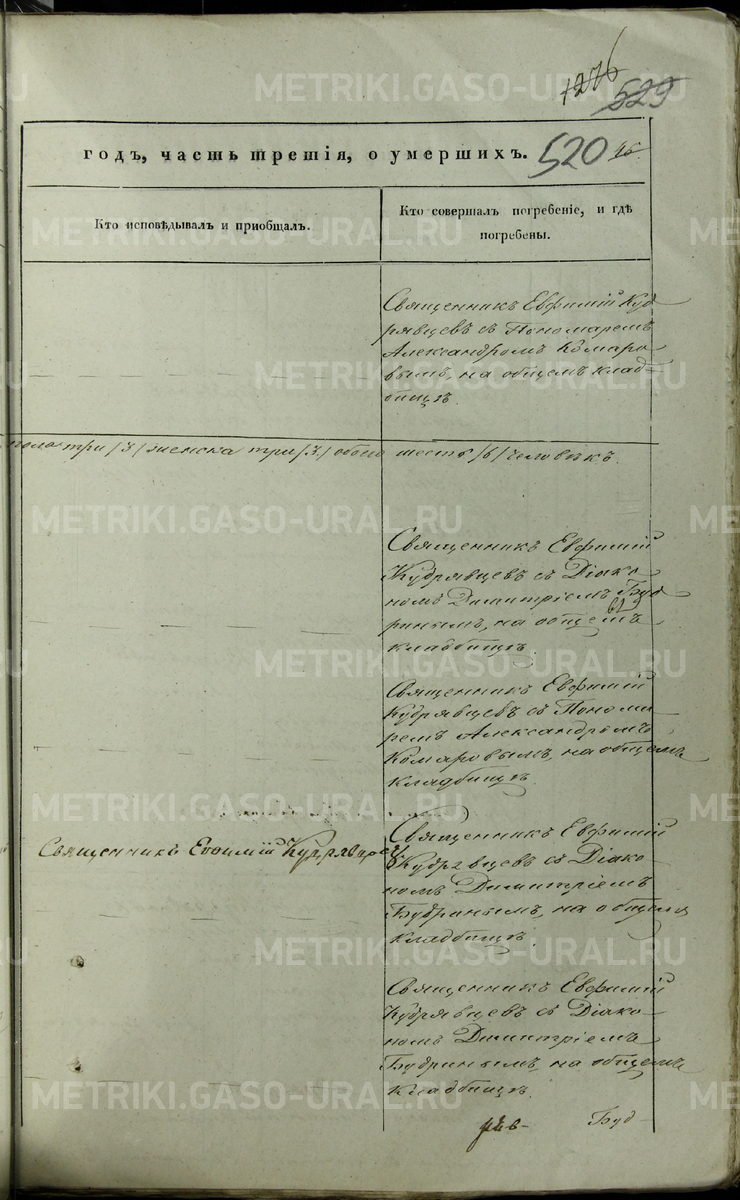 1276
529
520
годъ, часть третія, о умершихъ.
Кто исповѣдывалъ и приобщалъ.
Кто совершалъ погребеніе, и гдѣ
погребены.
Священникъ Евфимій Куд
рявцевъ съ Пономаремъ
Александромъ Комаро
вымъ, на общемъ клад-
бищѣ.
пола три /3/ женска три /3/ обоего шесть /6/ человѣкъ.
Священникъ Евфимій
Кудрявцевъ съ Діако
номъ Димитріемъ Буд
ринымъ, на общемъ
кладбищѣ.
Священникъ Евфимій
Кудрявцевъ съ Понома
ремъ Александромъ
Комаровымъ, на общемъ
кладбищѣ.
Священникъ Ефимій Кудрявцев
Священникъ Евфимій
Кудрявцевъ съ Діако
номъ Димитріемъ
Будринымъ, на общемъ
кладбищѣ.
Священникъ Евфимій
Кудрявцевъ съ Діако-
номъ Димитріемъ
Будринымъ, на общемъ
кладбищѣ.
Буд
METRIKI.GASO-URAL.RU